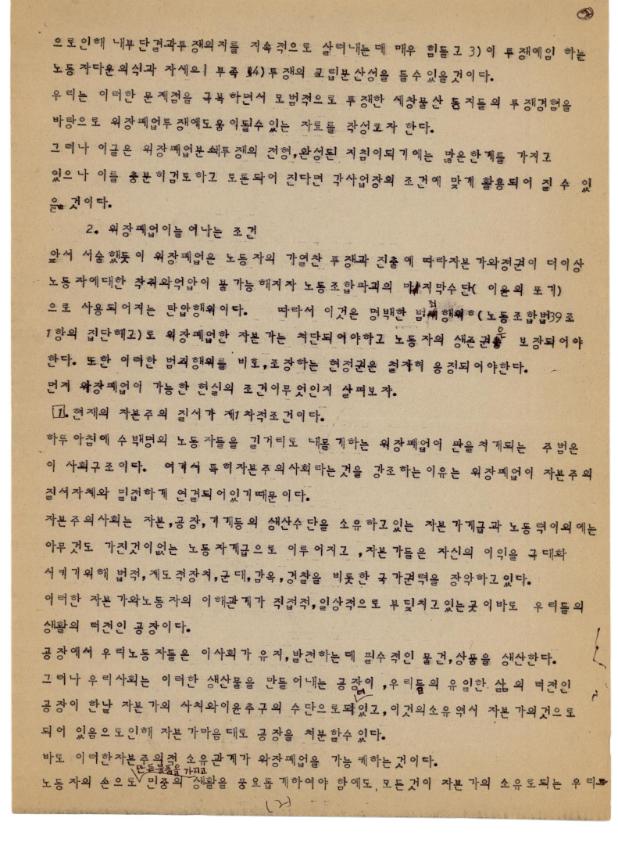 으로인해 내부단결과투쟁의지를 지속적으로 살려내는데 매우 힘들고 3)이 투쟁에임 하는
노동자다운의식과 자세의 부족 4)투쟁의 고립분산성을 들수있을것이다.
우리는 이러한 문제점을 극복하면서 모범적으로 투쟁한 세창물산 동지들의 투쟁경험을
바탕으로 위장폐업투쟁에도움이될수있는 자료를 작성코자 한다.
그러나 이글은 위장폐업분쇄투쟁의 전형,완성된 지침이되기에는 많은한계를 가지고
있으나 이를 충분히검토하고 토론되어 진다면 각사업장의 조건에 맞게 활용되어 질수 있
을 것이다.
2. 위장폐업이늘어나는 조건
앞서 서술했듯이 위장폐업은 노동자의 가열찬 투쟁과 진출에 따라자본가와정권이 더이상
노동자에대한 착취와억압이 불가능해지자 노동조합파괴의 마지막수단( 이윤의 포기)
으로 사용되어지는 탄압행위이다. 따라서 이것은 명백한 범죄행위(노동조합법39조
1항의 집단해고)로 위장폐업한 자본가는 처단되어야하고 노동자의 생존권은 보장되어야
한다. 또한 이러한 범죄행위를 비호,조장하는 현정권은 철저히 응징되어야한다.
먼저 위장폐업이 가능한 현실의 조건이무엇인지 살펴보자.
1. 현재의 자본주의 질서가 제1차적조건이다.
하루아침에 수백명의 노동자들을 길거리로 내몰게하는 위장폐업이 판을쳐게되는 주범은
이 사회구조이다. 여기서 특히자본주의사회라는것을 강조하는이유는 위장폐업이 자본주의
질서자체와 밀접하게 연결되어있기때문이다.
자본주의사회는 자본,공장,기계등의 생산수단을 소유하고있는 자본가계급과 노동력이외에는
아무것도 가진것이없는 노동자계급으로 이루어지고 ,자본가들은 자신의 이익을 극대화
시키기위해 법적,제도적장치,군대,감옥,경찰을 비롯한 국가권력을 장악하고있다.
이러한 자본가와노동자의 이해관계가 직접적,일상적으로 부딪치고있는곳이바로 우리들의
생활의 터전인 공장이다.
공장에서 우리노동자들은 이사회가 유지,발전하는데 필수적인 물건,상품을 생산한다.
그러나 우리사회는 이러한 생산물을 만들어내는 공장이 ,우리들의 유일한 삶의 터전인
공장이 한낱 자본가의 사치와이윤추구의 수단으로돼있고,이것의소유역시 자본가의것으로
되어 있음으로인해 자본가마음대로 공장을 처분할수있다.
바로 이러한자본주의적 소유관계가 위장폐업을 가능케하는것이다.
노동자의 손으로 만든물품을 가지고 민중의 생활을 풍요롭게하여야 함에도 모든것이 자본가의 소유로되는 우리
(2)